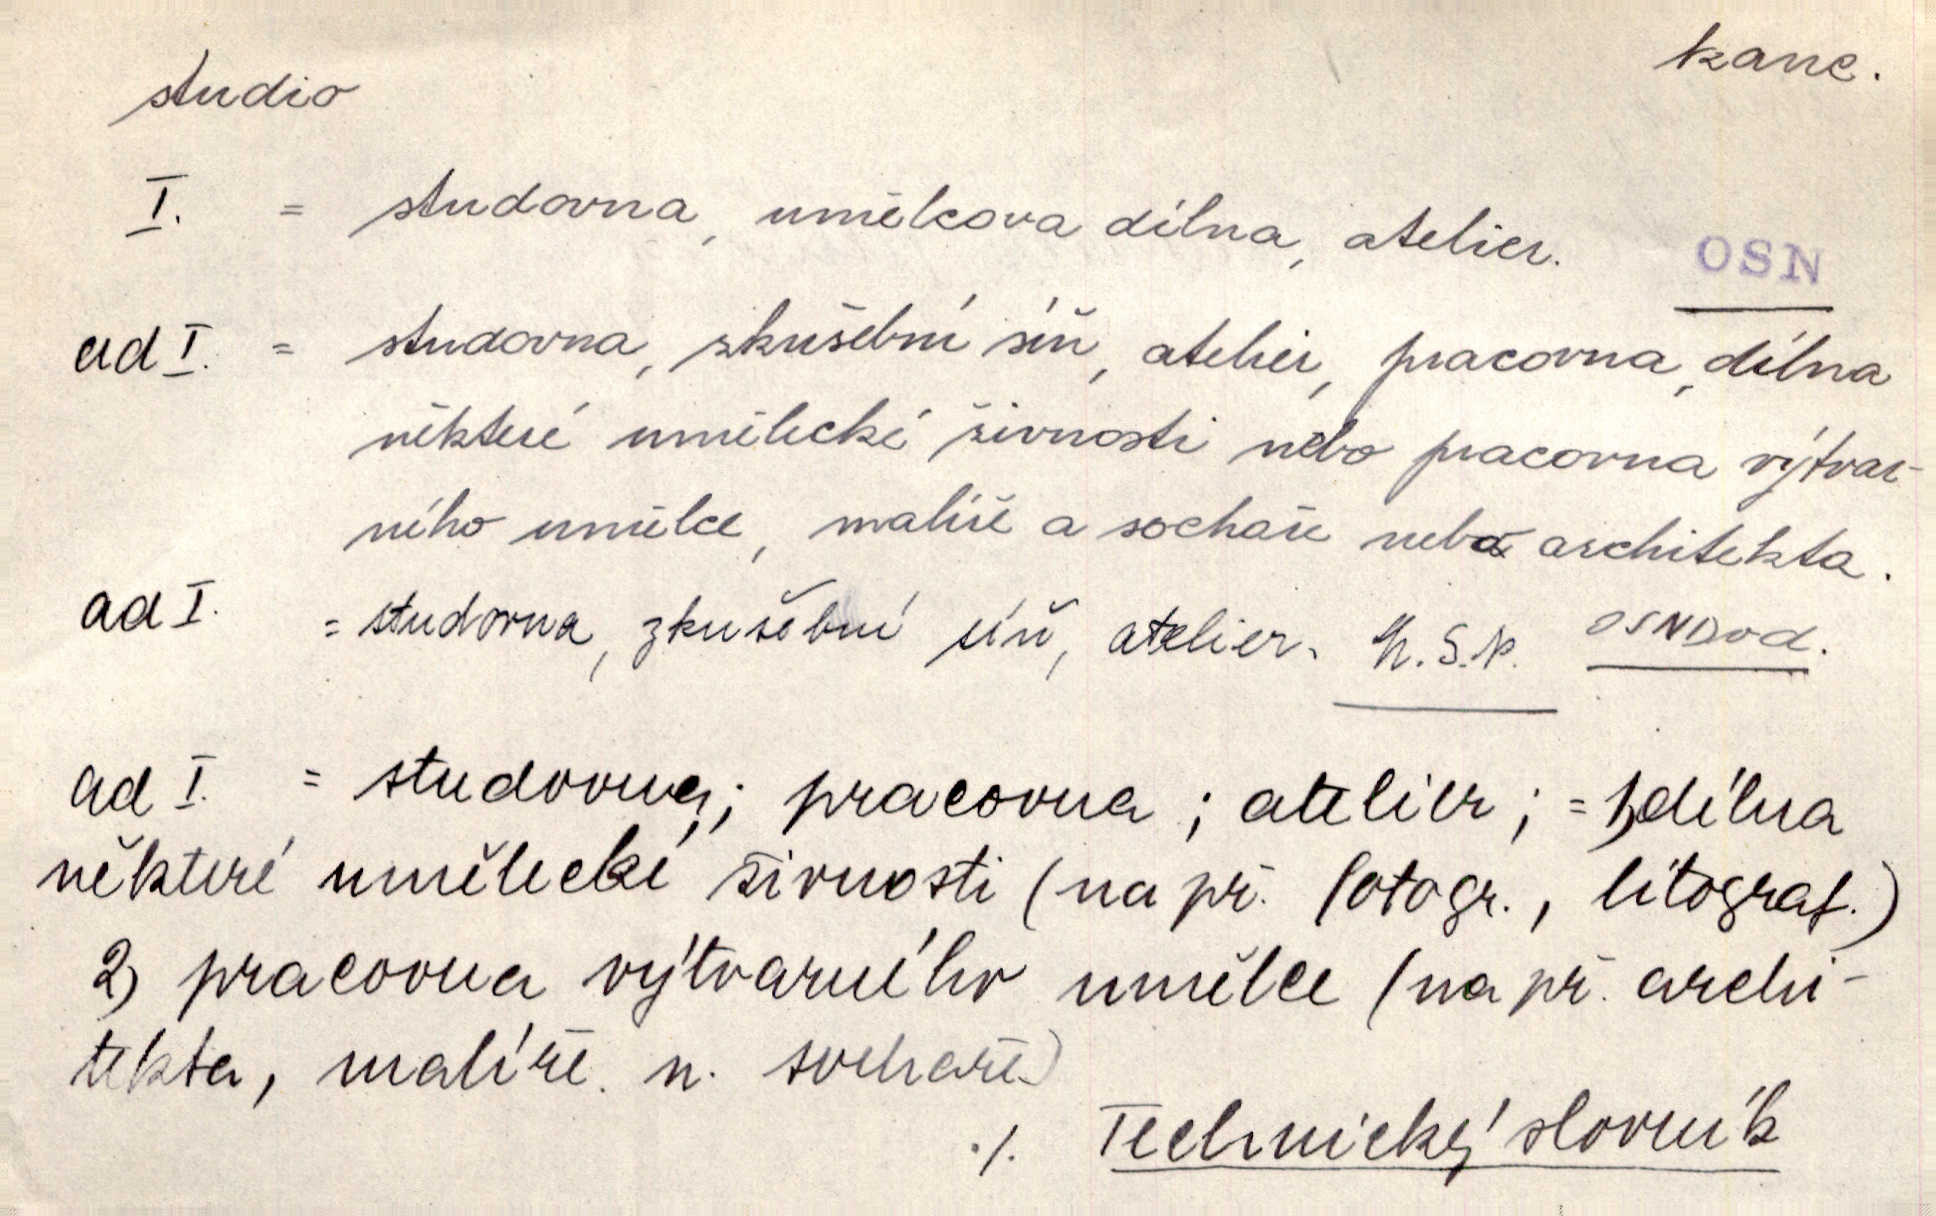 studio kanc.
I. = studovna, umělcova dílna, atelier.
OSN
ad I. = studovna, zkušební síň, atelier, pracovna, dílna
některé umělecké živnosti nebo pracovna výtvar-
ného umělce, malíře a sochaře nebo architekta.
OSNDod.
ad I. = studovna, zkušební síň, atelier. N.S.N.
ad I. = studovna; pracovna; atelier; = 1) dílna
některé umělecké živnosti (na př. fotogr., litograf.)
2) pracovna výtvarného umělce (na př. archi-
tekta, malíře n. sochaře)
./. Technický slovník